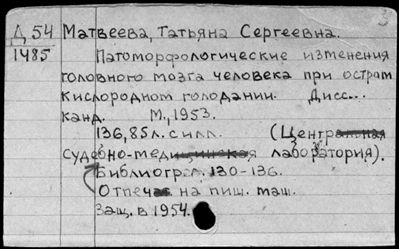 Д 54 Матвеева, Татьяна Сергеевна.
1485 Патоморфологические изменения
головного мозга человека при остром
кислородном голодании. Дисс...
канд. М., 1953.
136, 85 л. с илл. (Центральная
судебно-медицинская лаборатория).
Библиогр. л. 130-136.
Отпечат на пиш. маш.
Защ. в 1954.